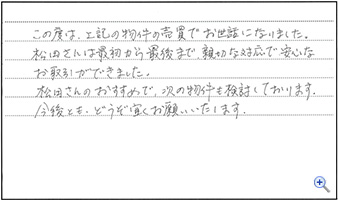 この度は、上記の物件の売買でお世話になりました。
松田さんは最初から最後まで、親切な対応で安心な
お取引ができました。
松田さんのおすすめで、次の物件も検討しております。
今後とも、どうぞ宜くお願いいたします。